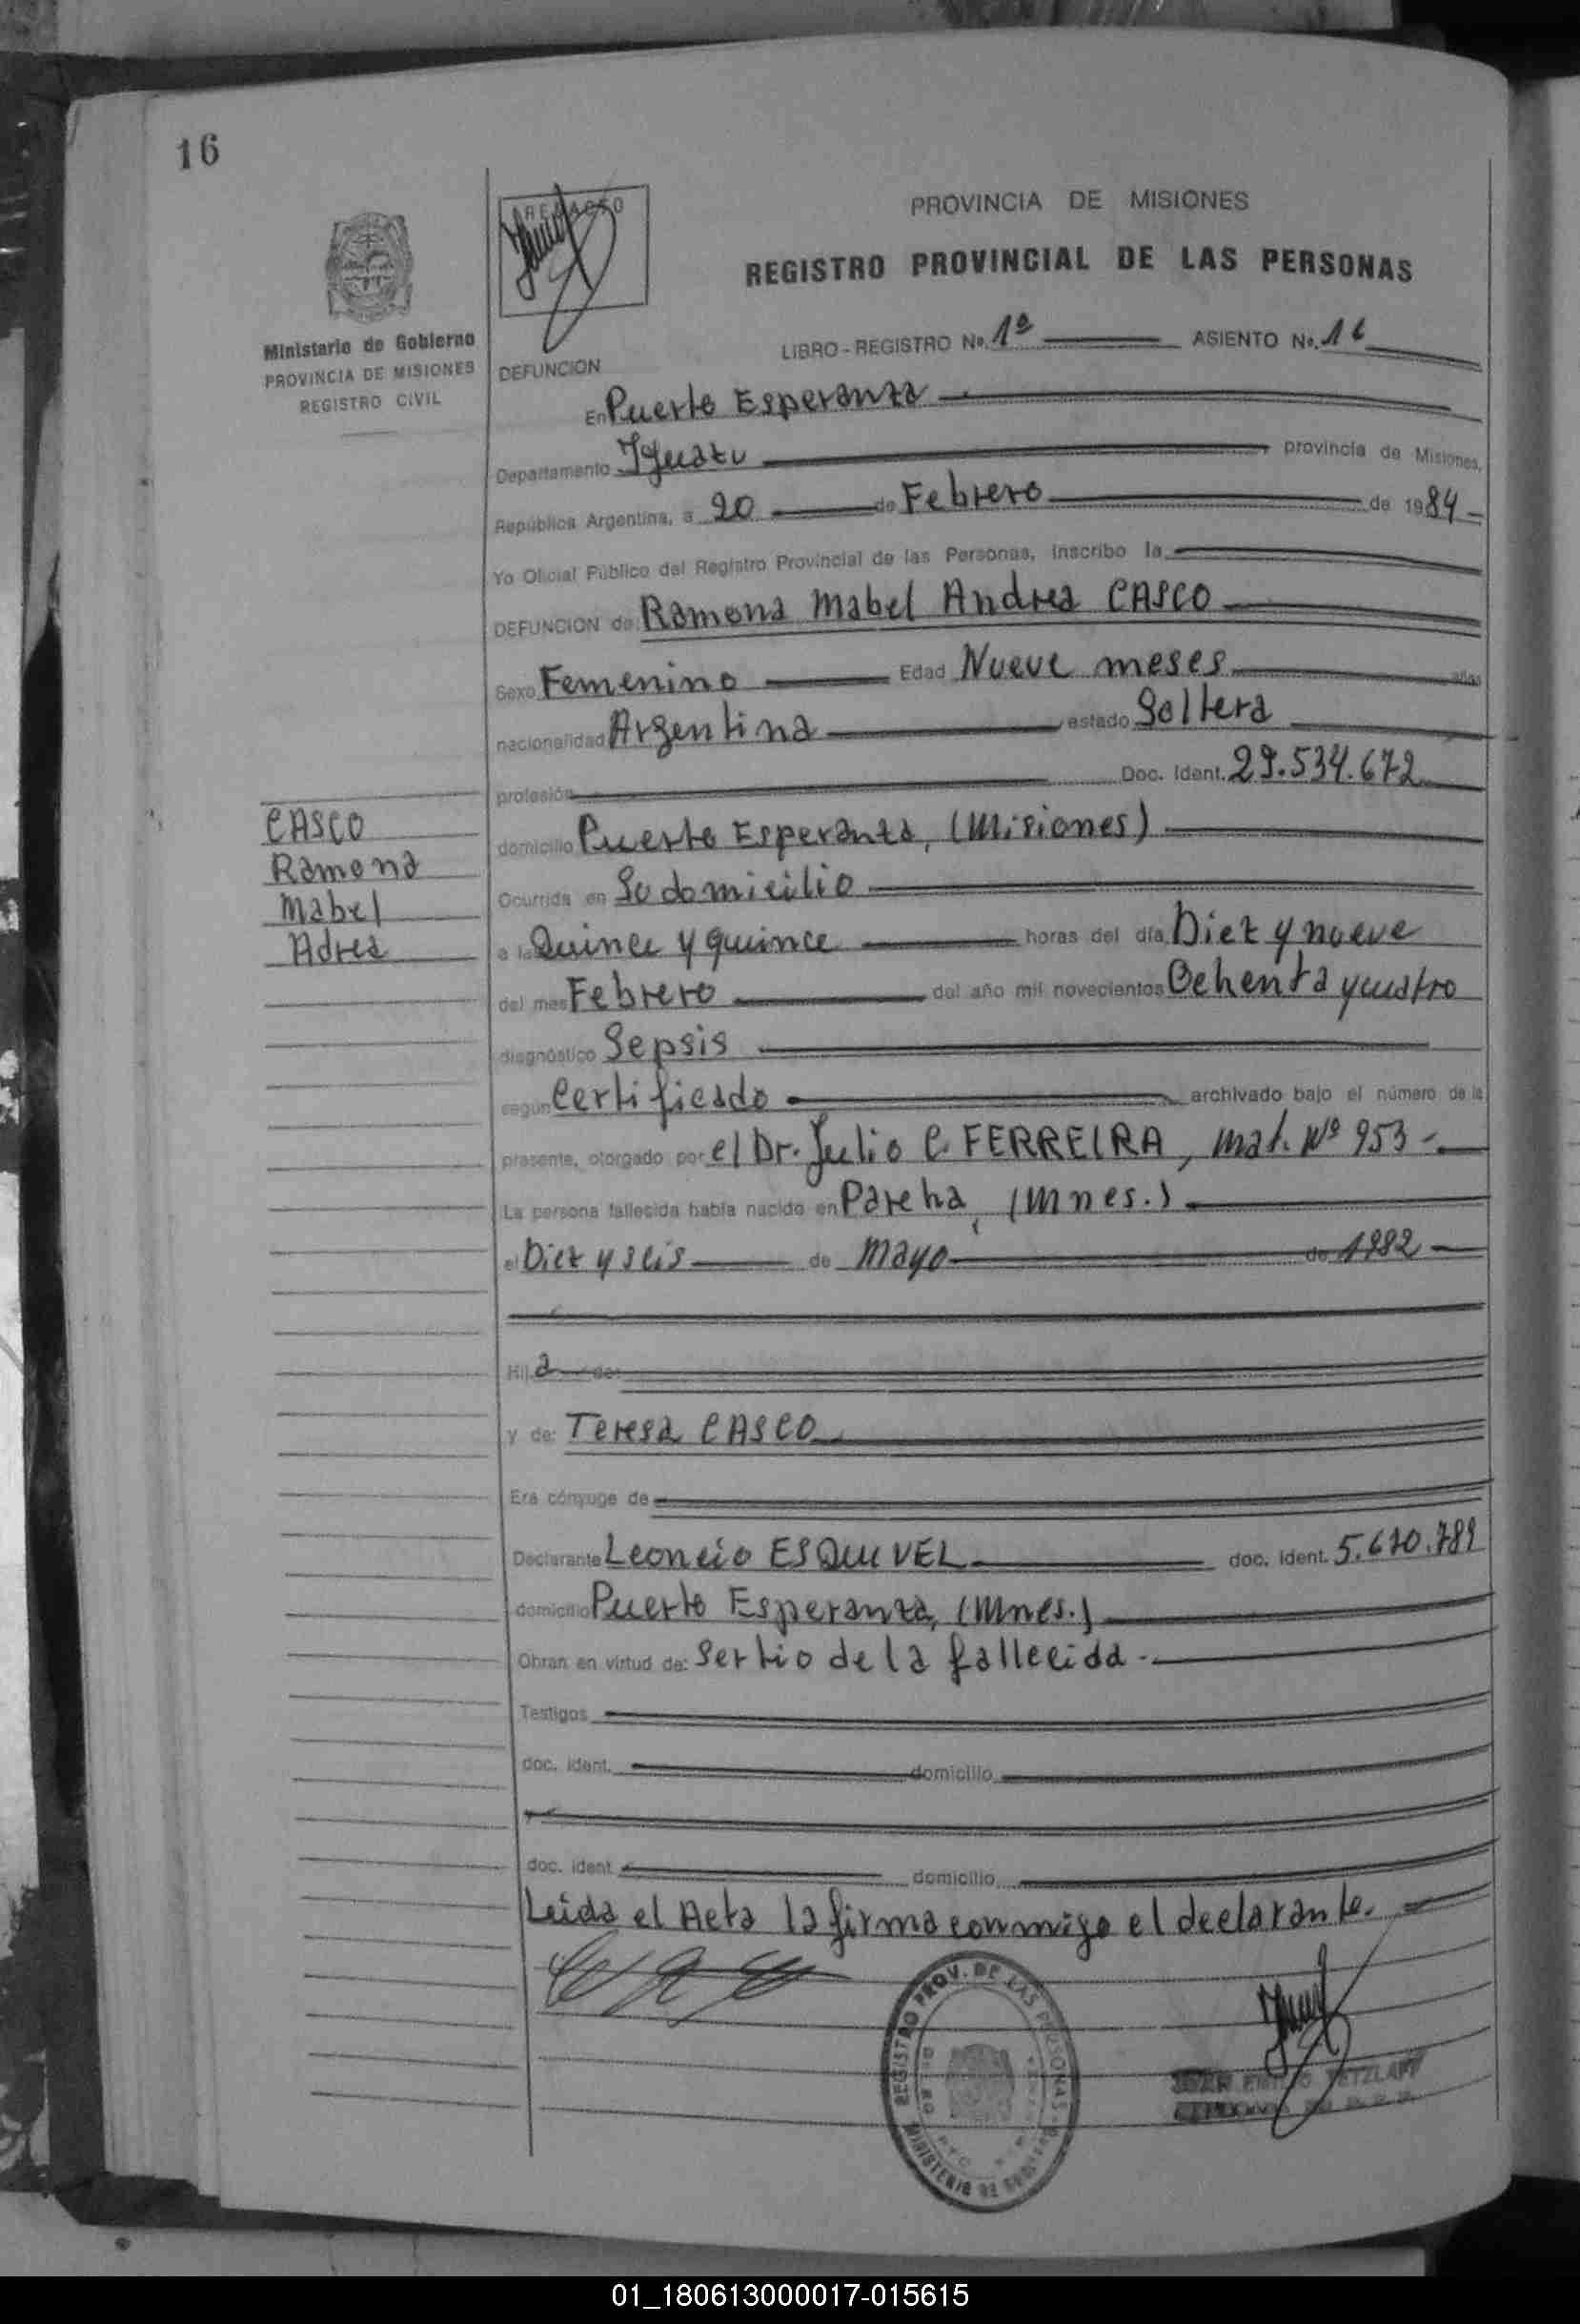 16
REMACTO
PROVINCIA DE MISIONES
REGISTRO PROVINCIAL DE LAS PERSONAS
Ministerio de Gobierno
PROVINCIA DE MISIONES
REGISTRO CIVIL
LIBRO - REGISTRO No. 1º ASIENTO No. 16
DEFUNCION
En Puerto Esperanza
Departamento Iguazu provincia de Misiones,
República Argentina, a 20 de Febrero de 1984
Yo Oficial Público del Registro Provincial de las Personas, inscribo la
DEFUNCION de: Ramona Mabel Andrea CASCO
Sexo Femenino Edad Nueve meses años
nacionalidad Argentina estado Soltera
profesión Doc. Ident. 29.534.672
CASCO
Ramona
Mabel
Adrea
domicilio Puerto Esperanza, (Misiones)
Ocurrida en Su domicilio
a las Quince y quince horas del día Diez y nueve
del mes Febrero del año mil novecientos Ochenta y cuatro
diagnóstico Sepsis
según Certificado archivado bajo el número de la
presente, otorgado por el Dr. Julio C. FERREIRA, mat. Nº 953 -
La persona fallecida había nacido en Pareha, (Mnes.)
el Diez y seis de mayo de 1982
Hija de:
y de: Teresa CASCO
Era cónyuge de
Declarante Leoncio ESQUIVEL doc. ident. 5.670.789
domicilio Puerto Esperanza, (Mnes.)
Obran en virtud de: Ser tio de la fallecida -
Testigos
doc. ident. domicilio
doc. ident. domicilio
Leida el Acta la firma conmigo el declarante.
REGISTRO PROV. DE LAS PERSONAS
MINISTERIO DE GOBIERNO
01_180613000017-015615